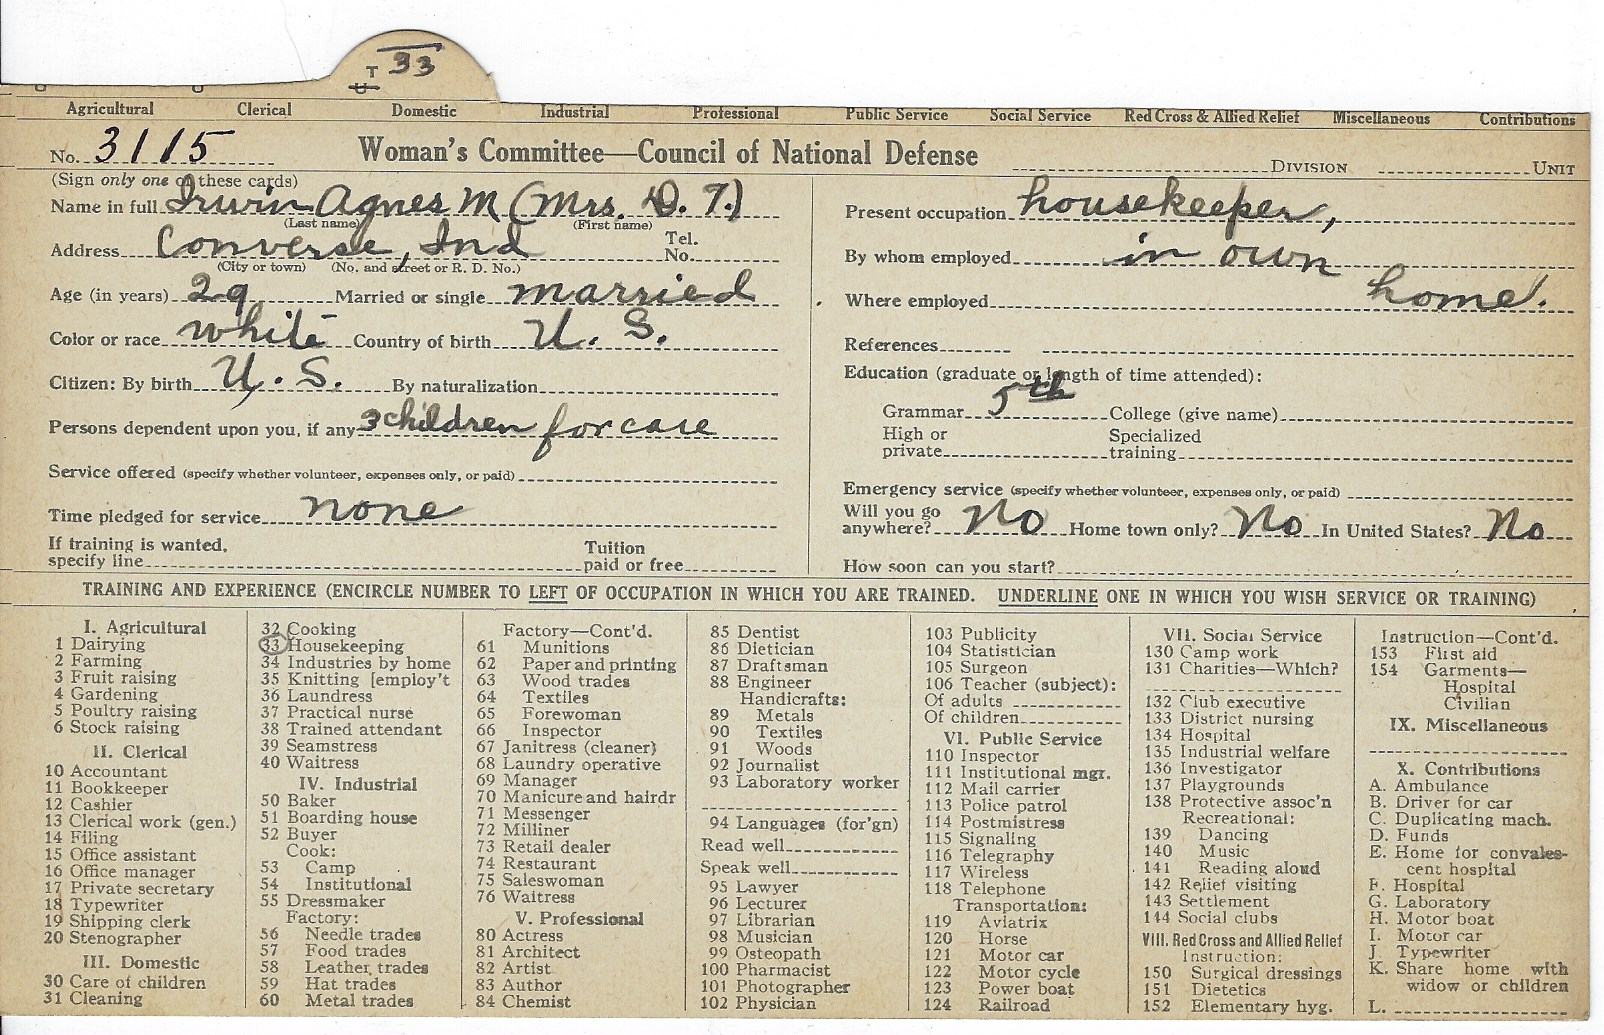 T 33
Agricultural Clerical Domestic Industrial Professional Public Service Social Service Red Cross & Allied Relief Miscellaneous Contributions
No. 3115 Woman's Committee—Council of National Defense DIVISION UNIT
(Sign only one of these cards)
Name in full Irwin Agnes M (Mrs. D. T.)
(Last name) (First name)
Address Converse, Ind Tel. No.
(City or town) (No. and street or R. D. No.)
Age (in years) 29 Married or single married
Color or race white Country of birth U. S.
Citizen: By birth U. S. By naturalization
Persons dependent upon you, if any 3 children for care
Service offered (specify whether volunteer, expenses only, or paid)
Time pledged for service none
If training is wanted, specify line Tuition paid or free
Present occupation housekeeper,
By whom employed in own
Where employed home.
References
Education (graduate or length of time attended):
Grammar 5th College (give name)
High or private Specialized training
Emergency service (specify whether volunteer, expenses only, or paid)
Will you go anywhere? No Home town only? No In United States? No
How soon can you start?
TRAINING AND EXPERIENCE (ENCIRCLE NUMBER TO LEFT OF OCCUPATION IN WHICH YOU ARE TRAINED. UNDERLINE ONE IN WHICH YOU WISH SERVICE OR TRAINING)
I. Agricultural
1 Dairying
2 Farming
3 Fruit raising
4 Gardening
5 Poultry raising
6 Stock raising
II. Clerical
10 Accountant
11 Bookkeeper
12 Cashier
13 Clerical work (gen.)
14 Filing
15 Office assistant
16 Office manager
17 Private secretary
18 Typewriter
19 Shipping clerk
20 Stenographer
III. Domestic
30 Care of children
31 Cleaning
32 Cooking
33 Housekeeping
34 Industries by home
35 Knitting [employ't
36 Laundress
37 Practical nurse
38 Trained attendant
39 Seamstress
40 Waitress
IV. Industrial
50 Baker
51 Boarding house
52 Buyer
Cook:
53 Camp
54 Institutional
55 Dressmaker
Factory:
56 Needle trades
57 Food trades
58 Leather trades
59 Hat trades
60 Metal trades
Factory—Cont'd.
61 Munitions
62 Paper and printing
63 Wood trades
64 Textiles
65 Forewoman
66 Inspector
67 Janitress (cleaner)
68 Laundry operative
69 Manager
70 Manicure and hairdr
71 Messenger
72 Milliner
73 Retail dealer
74 Restaurant
75 Saleswoman
76 Waitress
V. Professional
80 Actress
81 Architect
82 Artist
83 Author
84 Chemist
85 Dentist
86 Dietician
87 Draftsman
88 Engineer
Handicrafts:
89 Metals
90 Textiles
91 Woods
92 Journalist
93 Laboratory worker
94 Languages (for'gn)
Read well
Speak well
95 Lawyer
96 Lecturer
97 Librarian
98 Musician
99 Osteopath
100 Pharmacist
101 Photographer
102 Physician
103 Publicity
104 Statistician
105 Surgeon
106 Teacher (subject):
Of adults
Of children
VI. Public Service
110 Inspector
111 Institutional mgr.
112 Mail carrier
113 Police patrol
114 Postmistress
115 Signaling
116 Telegraphy
117 Wireless
118 Telephone
Transportation:
119 Aviatrix
120 Horse
121 Motor car
122 Motor cycle
123 Power boat
124 Railroad
VII. Social Service
130 Camp work
131 Charities—Which?
132 Club executive
133 District nursing
134 Hospital
135 Industrial welfare
136 Investigator
137 Playgrounds
138 Protective assoc'n
Recreational:
139 Dancing
140 Music
141 Reading aloud
142 Relief visiting
143 Settlement
144 Social clubs
VIII. Red Cross and Allied Relief
Instruction:
150 Surgical dressings
151 Dietetics
152 Elementary hyg.
Instruction—Cont'd.
153 First aid
154 Garments—
Hospital
Civilian
IX. Miscellaneous
X. Contributions
A. Ambulance
B. Driver for car
C. Duplicating mach.
D. Funds
E. Home for convales-
cent hospital
F. Hospital
G. Laboratory
H. Motor boat
I. Motor car
J. Typewriter
K. Share home with
widow or children
L.